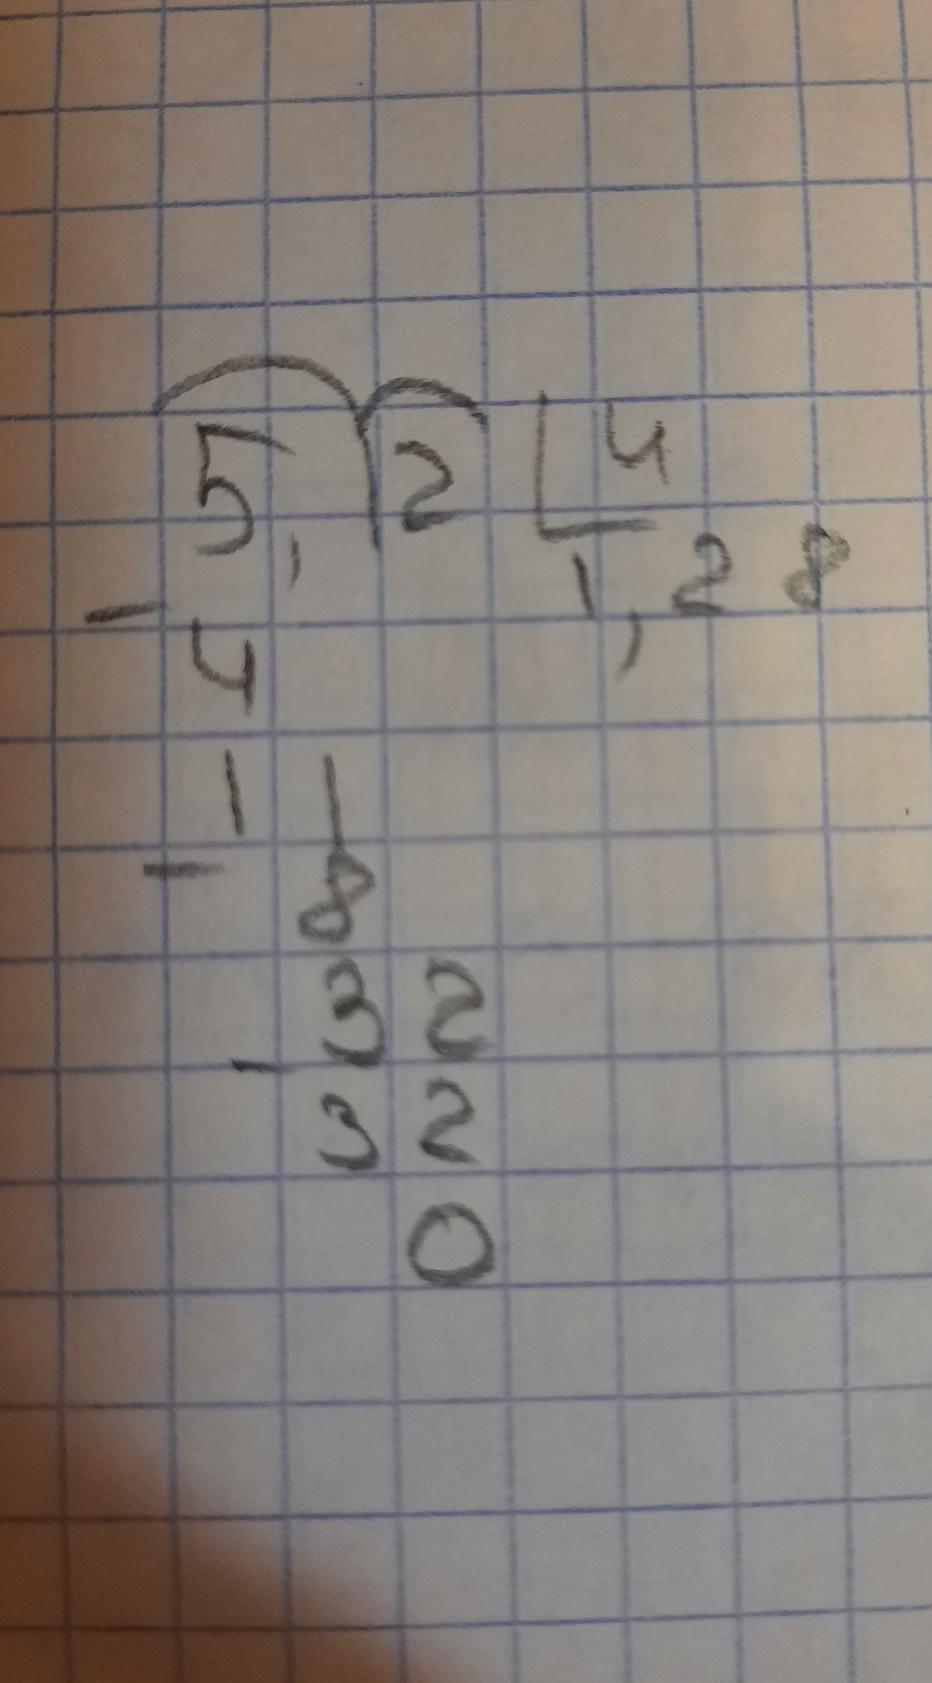 5,2 4
1,28
- 4
1 1
- 8
3 2
- 3 2
0